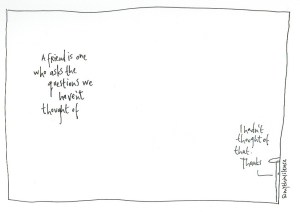 A friend is one
who asks the
questions we
haven't
thought of
I hadn't
thought of
that.
Thanks